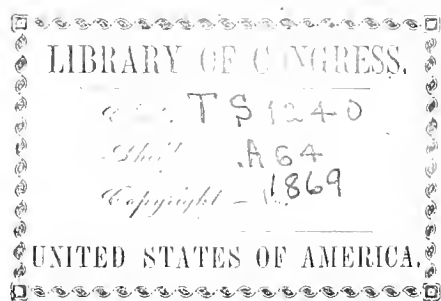 LIBRARY OF CONGRESS.
TS1240
Shelf .A64
Copyright 1869
UNITED STATES OF AMERICA.